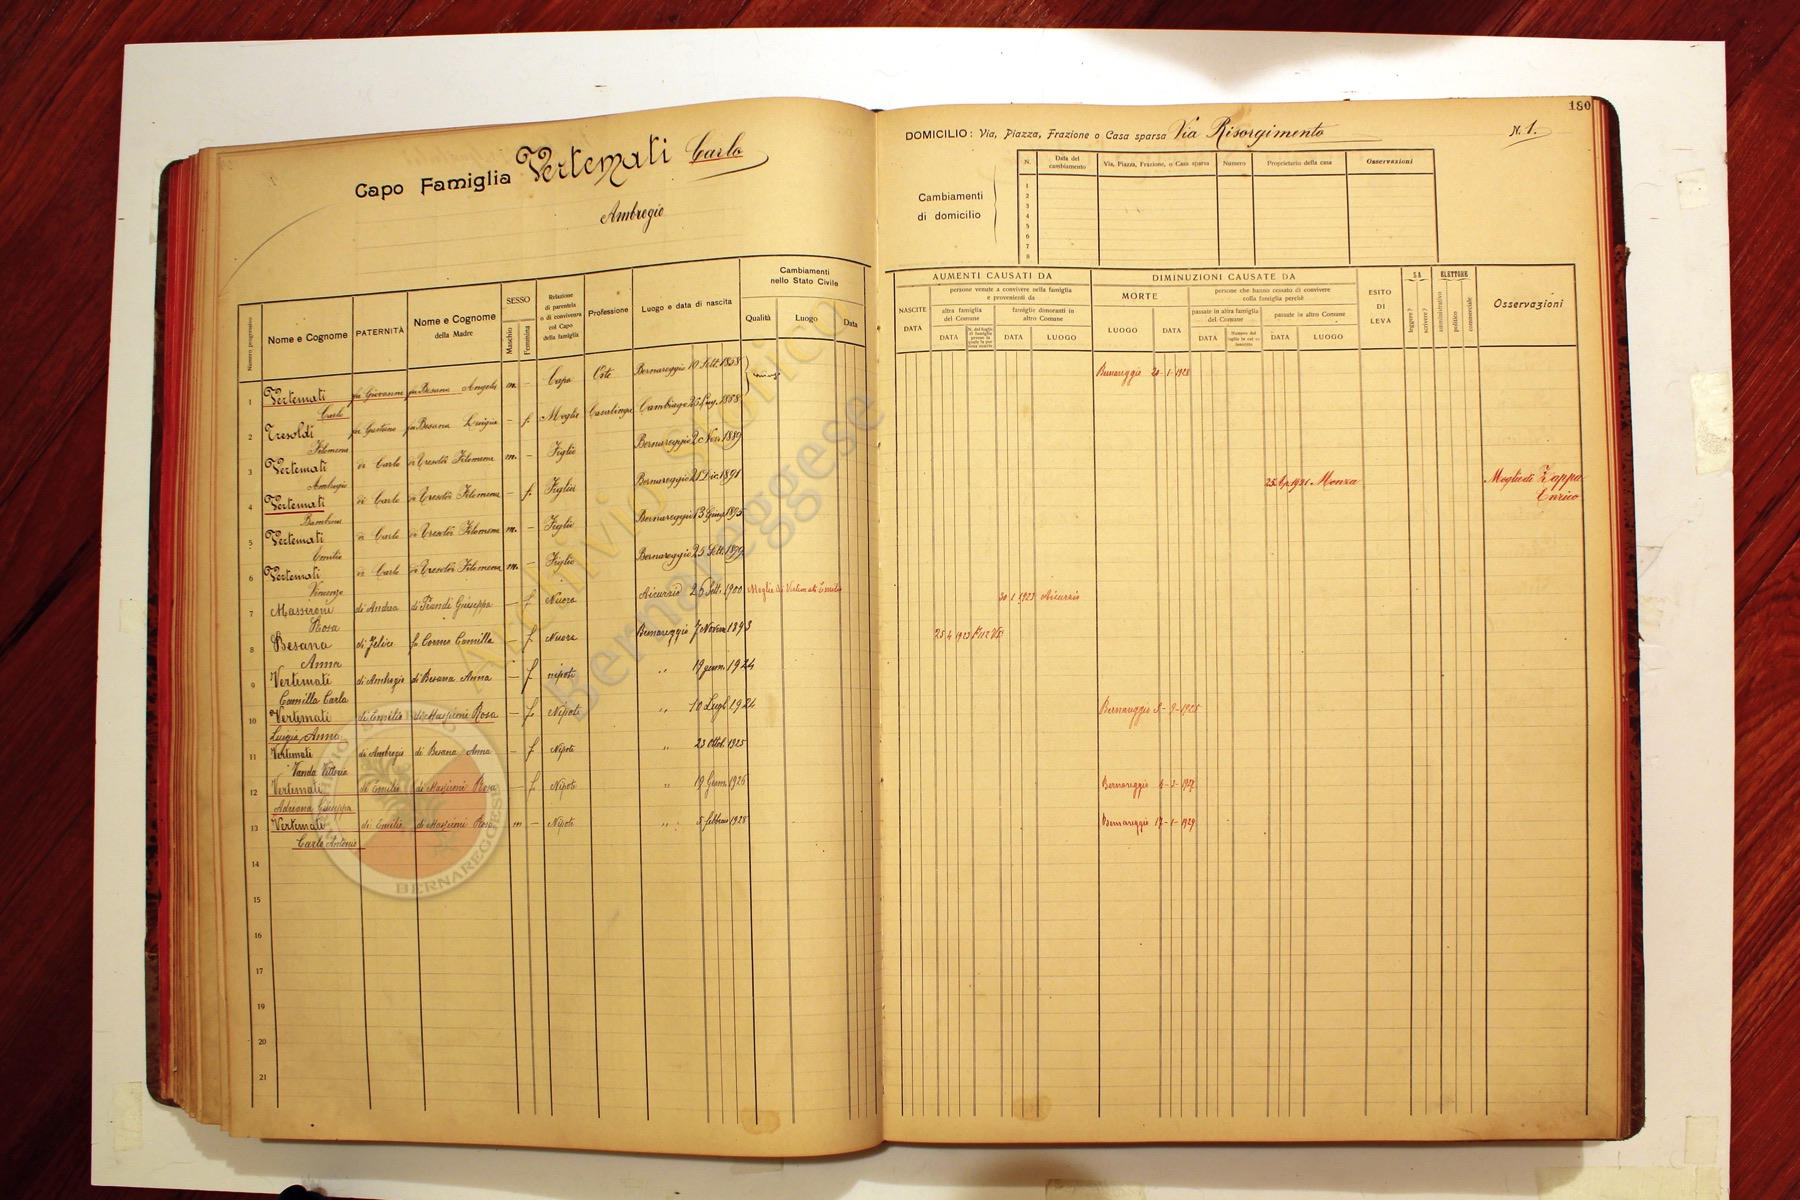 Capo Famiglia Vertemati Carlo
Ambrogio
180
DOMICILIO: Via, Piazza, Frazione o Casa sparsa Via Risorgimento N. 1.
Cambiamenti
di domicilio
N. Data del cambiamento Via, Piazza, Frazione, o Casa sparsa Numero Proprietario della casa Osservazioni
1
2
3
4
5
6
7
8
Numero progressivo
Nome e Cognome
PATERNITÀ
Nome e Cognome
della Madre
SESSO
Maschio
Femmina
Relazione
di parentela
o di convivenza
col Capo
della famiglia
Professione
Luogo e data di nascita
Cambiamenti
nello Stato Civile
Qualità Luogo Data
AUMENTI CAUSATI DA
NASCITE
DATA
persone venute a convivere nella famiglia
e provenienti da
altra famiglia
del Comune
famiglie dimoranti in
altro Comune
DATA
DATA LUOGO
DIMINUZIONI CAUSATE DA
MORTE
LUOGO DATA
persone che hanno cessato di convivere
colla famiglia perchè
passate in altra famiglia
del Comune
passate in altro Comune
DATA
DATA LUOGO
ESITO
DI
LEVA
SA
leggere?
scrivere?
ELETTORE
amministrativo
politico
commerciale
Osservazioni
1 Vertemati fu Giovanni fu Besana Angela m. – Capo Oste Bernareggio 10 Sett. 1858 Bernareggio 20-1-1928
Carlo
2 Tresoldi fu Gaetano fu Besana Luigia – f. Moglie Casalinga Cambiago 25 Lug. 1868
Filomena
3 Vertemati di Carlo di Tresoldi Filomena m. – Figlio Bernareggio 2 Nov. 1889
Ambrogio
4 Vertemati di Carlo di Tresoldi Filomena – f. Figlia Bernareggio 21 Dic. 1891 1921 Monza Moglie di Zappa
Enrico
5 Vertemati di Carlo di Tresoldi Filomena m. – Figlio Bernareggio 13 Giug. 1895
Emilio
6 Vertemati di Carlo di Tresoldi Filomena m. – Figlio Bernareggio 25 Sett. 1899
Vincenzo
7 Masseroni di Andrea di Giuseppa – f. Nuora Aicurzio 26 Sett. 1900 Moglie di Vertemati Emilio 20 1 1923 Aicurzio
Rosa
8 Besana di Felice fu Camilla – f. Nuora Bernareggio 7 Novem. 1893 25 4 1923
Anna
9 Vertemati di Ambrogio di Besana Anna – f nipote „ 19 genn. 1924
Camilla Carla
10 Vertemati di Emilio di Rosa – f. Nipote „ 10 Lugl. 1924 Bernareggio 1925
Luigia Anna
11 Vertemati di Ambrogio di Besana Anna – f. Nipote „ 23 Ottob. 1925
Vanda Vittoria
12 Vertemati di Emilio di Rosa – f. Nipote „ 19 Genn. 1926 Bernareggio
Adriana Giuseppa
13 Vertemati di Emilio di Rosa m – Nipote „ 5 febbraio 1928 Bernareggio 17-1-1929
Carlo Antonio
14
15
16
17
18
19
20
21
Archivio Storico
Bernareggese
BERNAREGGESE